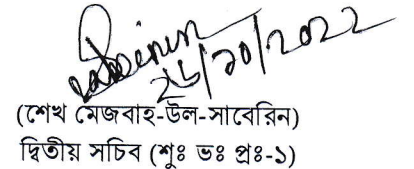 ২৬/১০/২০২২
(শেখ মেজবাহ-উল-সাবেরিন)
দ্বিতীয় সচিব (শুঃ ভঃ প্রঃ-১)